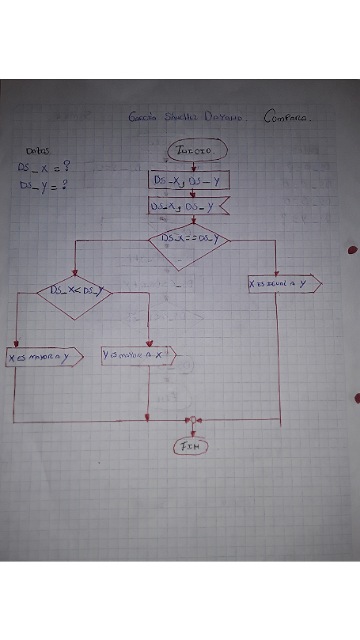 García Sánchez Dayana. Compara.
Datos
DS_X = ?
DS_Y = ?
Inicio
DS_X, DS_Y
DS_X, DS_Y
DS_X == DS_Y
DS_X < DS_Y
X es igual a Y
X es mayor a Y
Y es mayor a X
Fin